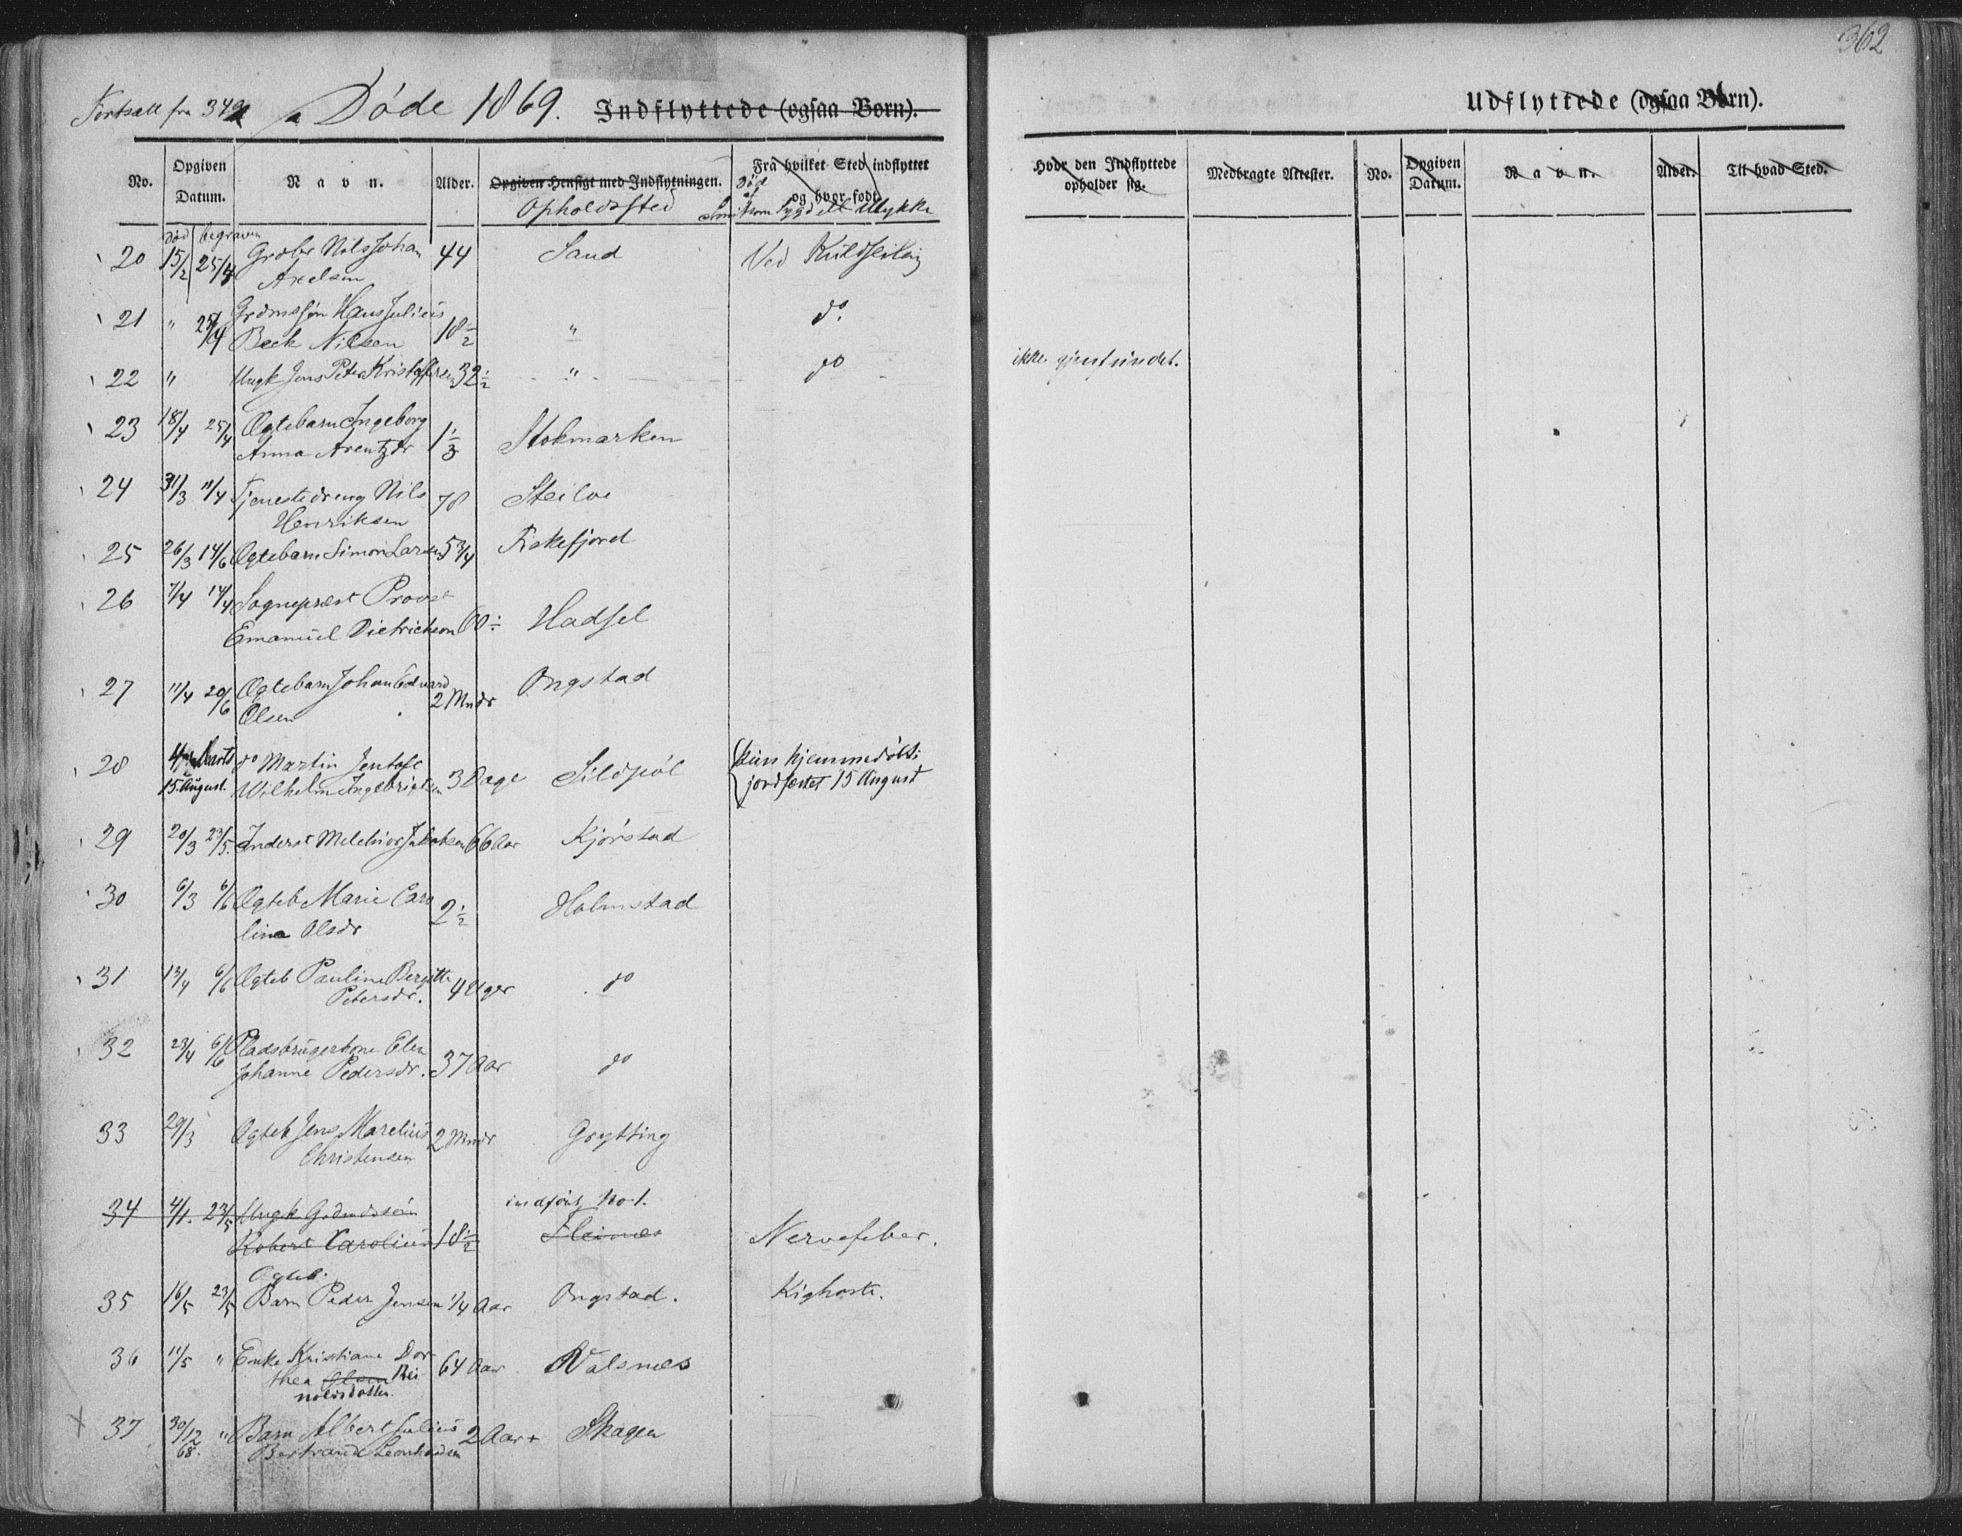 362
Fortsatt fra 349
Døde 1869. Indflyttede (ogsaa Børn).
No. Opgiven Datum. Navn. Alder. Opgiven Hensigt med Indflytningen. Fra hvilket Sted indflyttet og hvor født.
død begraven Opholdssted Død af Smitsom Sygd ell Ulykke
20 15/2 25/4 Grdbr Nils Johan 44 Sand Ved Kuldseiling
Axelsen
21 " 25/4 Grdmssøn Hans Julius 18½ " do.
Beck Nilsen
22 " Ungk Jens Peter Kristoffersen 32½ " do
23 18/4 25/4 Ægtebarn Ingeborg 1 1/3 Stokmarken
Anna Arentzdr
24 31/3 11/4 Tjenestedreng Nils 78 Steilo
Henriksen
25 26/3 14/6 Ægtebarn Simon Larsen 5 3/4 Fiskefjord
26 7/4 14/4 Sogneprest Provst
Emanuel Dietrichson 60½ Hadsel
27 11/4 20/6 Ægtebarn Johan Edvard 2 Mndr Ongstad
Olsen
28 4de Marts do Martin Jentoft 3 Dage Sildpol kun hjemmedøbt;
15. August. Wilhelm Ingebrigtsen jordfæstet 15 August
29 20/3 23/5 Inderst Melchior Jakobsen 66 Aar Kjørstad
30 6/3 6/6 Ægteb Marie Caro 2½ Holmstad
lina Olsdr
31 13/4 6/6 Ægteb Pauline Bergitte 4 Uger do
Petersdr.
32 23/4 6/6 Pladsbrugerkone Elen
Johanne Pedersdr. 37 Aar do
33 29/3 Ægteb Jens Marelius 2 Mndr Grytting
Christensen
indført No 1.
34 4/1. 23/5 Ungk Grdmdssøn
Robert Carolius 18½ Fleines Nervefeber.
Ægteb.
35 16/5 23/5 Barn Peder Jensen 1/4 Aar Ongstad. Kighoste.
36 11/5 " Enke Kristiane Dor 64 Aar Valsnes
thea Olsen Rei
noldsdatter.
37 30/12 68. " Barn Albert Julius 2 Aar + Skagen
Bertrand Leonhardsen
Udflyttede (ogsaa Børn).
Hvor den Indflyttede opholder sig. Medbragte Attester. No. Opgiven Datum. Navn. Alder. Til hvad Sted.
ikke gjenfundet.